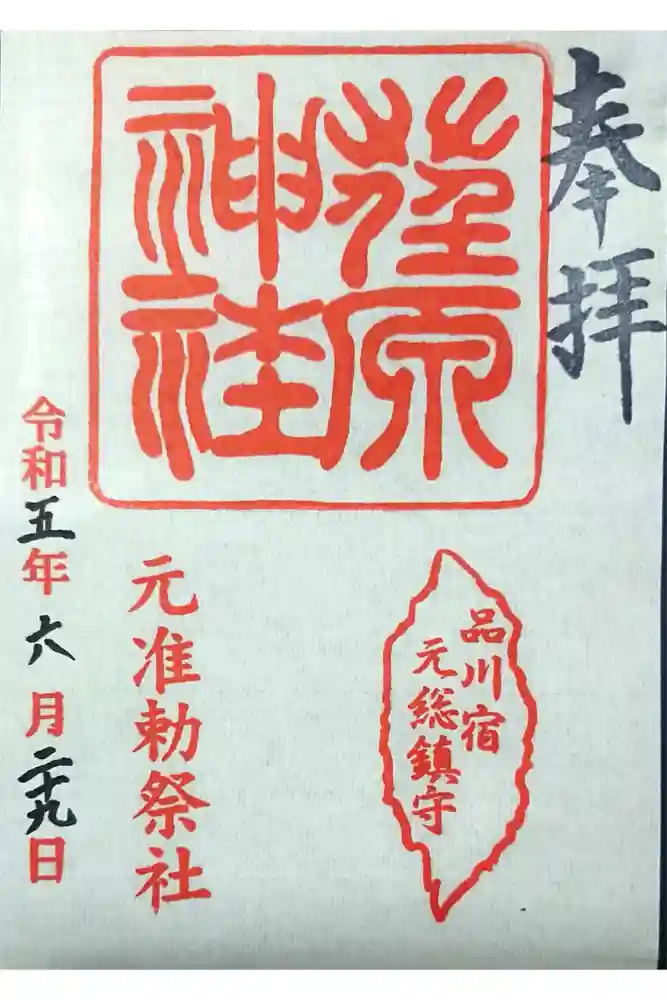 奉拝
荏原
神社
品川宿
元総鎮守
元准勅祭社
令和五年六月二十九日